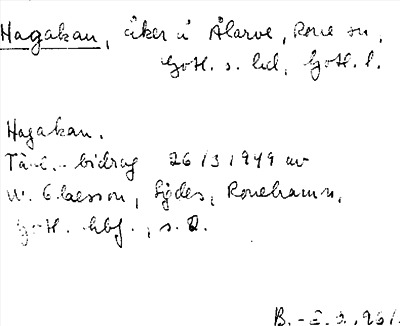 Hagakan, åker i Ålarve, Rone sn,
Gotl. s. hd, Gotl. l.
Hagakan.
bidrag 26/3 1949 av
Claesson, Sjides, Ronehamn,
Gotl. , s. 2.